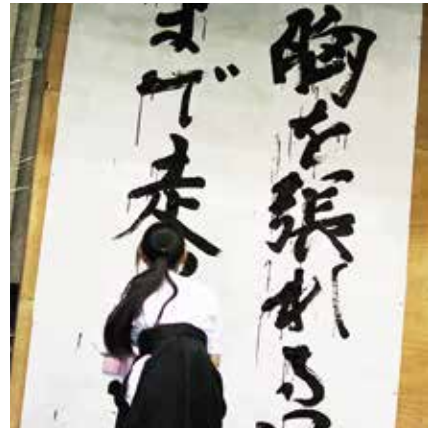 胸を張れる
まで走